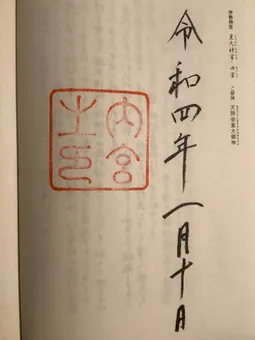 伊勢神宮 皇大神宮・内宮 ご祭神 天照坐皇大御神
令和四年一月十日
内宮
之印